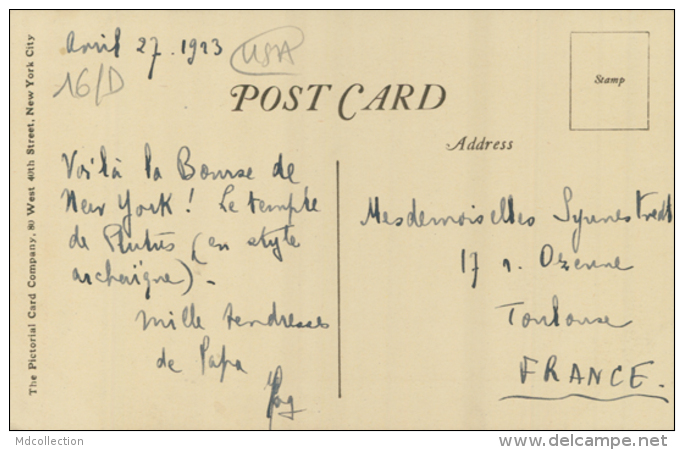 Avril 27. 1923
USA
16/D
POST CARD
Stamp
Address
The Pictorial Card Company, 80 West 40th Street, New York City
Voilà la Bourse de
New York! Le temple
de Plutus (en style
archaïque) -
mille tendresses
de Papa
Mesdemoiselles
17 r. Ozenne
Toulouse
FRANCE.
Mdcollection
www.delcampe.net